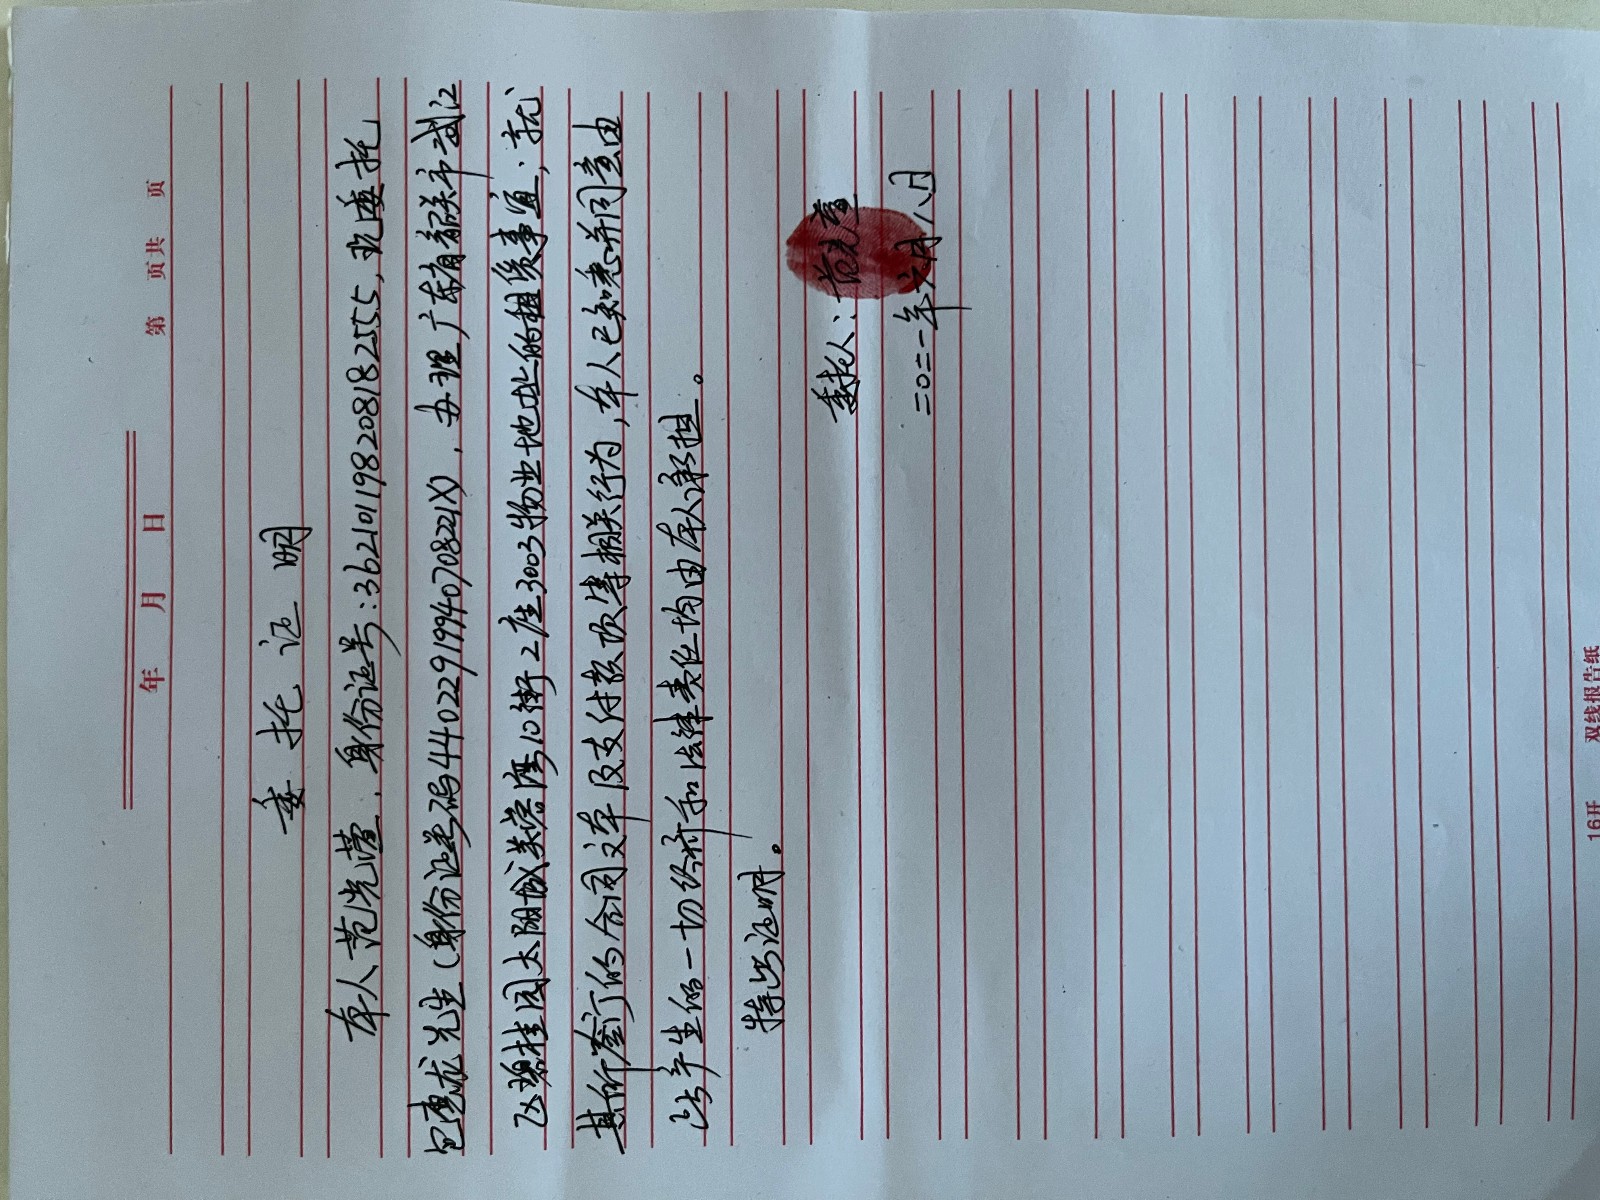 第 页共 页
年 月 日
委托证明
本人范光萱，身份证号：362101198208182555，现委托
包惠龙先生（身份证号码44022919940708221X），办理广东省韶关市武江
区碧桂园太阳城芙蓉湾10街2座3003物业地址的租赁事宜，就
其所签订的合同文本及支付款项等相关行为，本人已知悉并同意由
此产生的一切经济和法律责任均由本人承担。
特此证明。
委托人：范光萱
二〇二一年六月八日
16开 双线报告纸